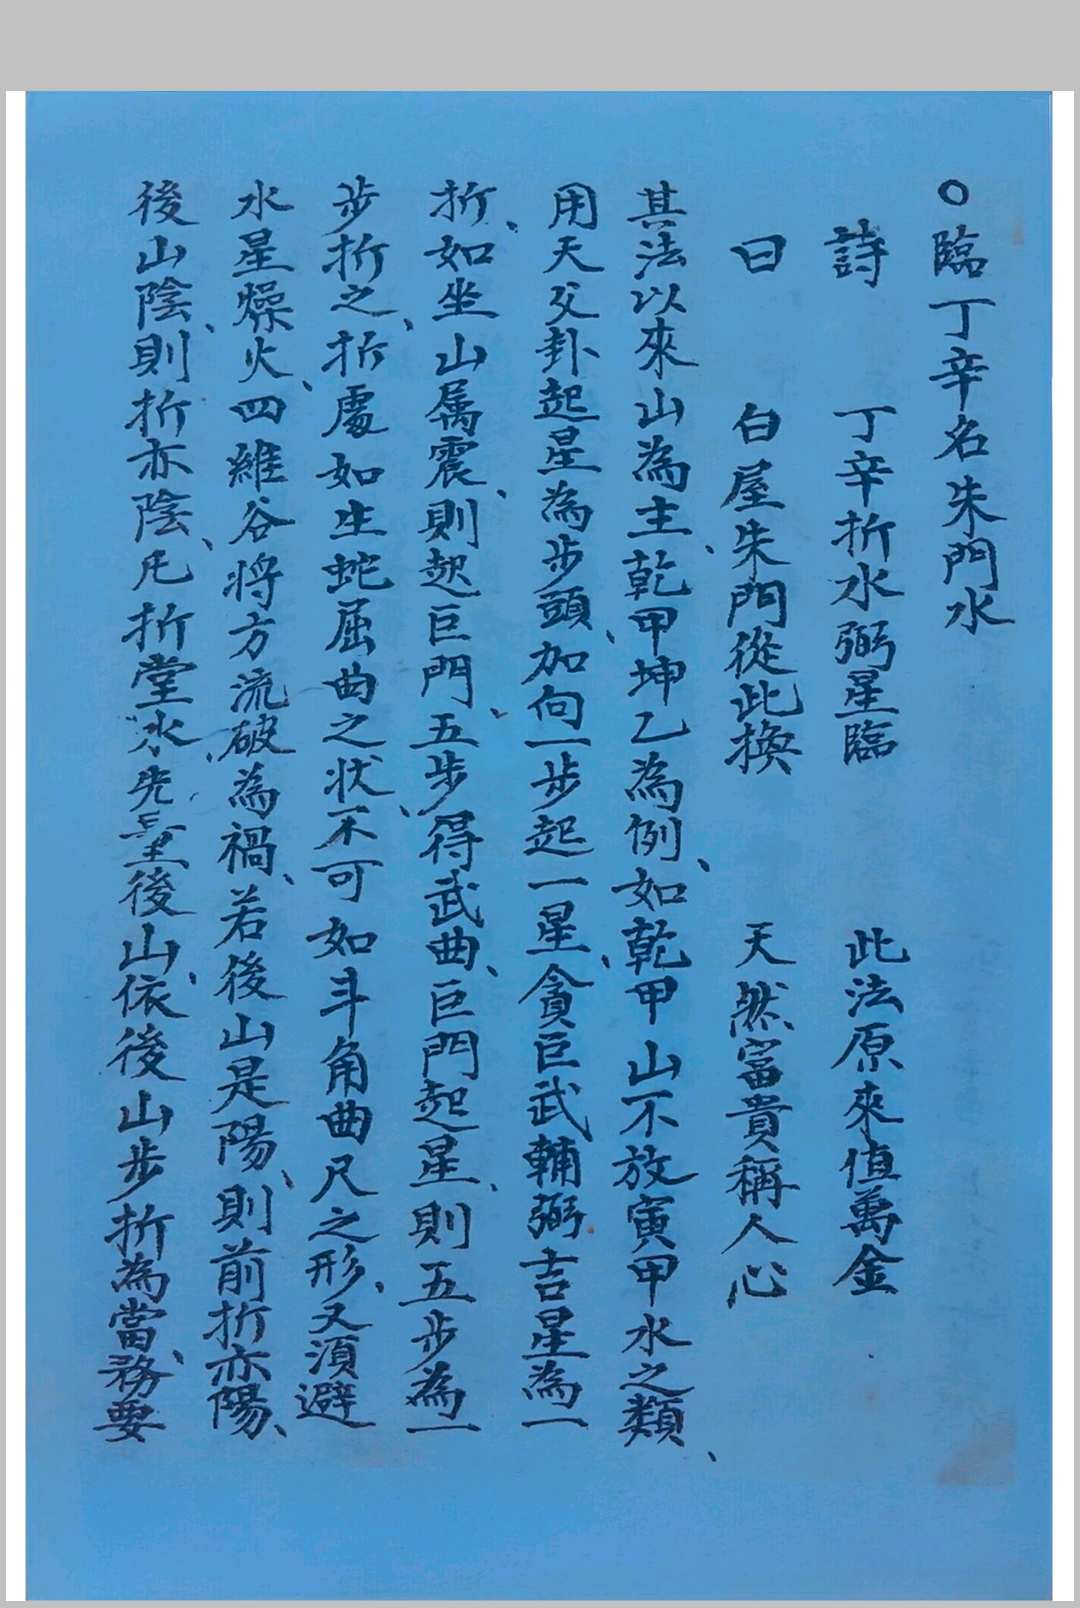 ○臨丁辛名朱門水
詩　丁辛折水弼星臨　此法原來值萬金
曰　白屋朱門從此換　天然富貴稱人心
其法以來山為主、乾甲坤乙為例、如乾甲山不放寅甲水之類、
用天父卦起星為步頭、加向一步起一星、貪巨武輔弼吉星為一
折、如坐山屬震、則起巨門、五步得武曲、巨門起星、則五步為一
步折之、折處如生蛇屈曲之状、不可如斗角曲尺之形、又須避
水星燥火、四維谷将方流破為禍、若後山是陽、則前折亦陽、
後山陰、則折亦陰、凡折堂水、先量後山、依後山步折為當、務要